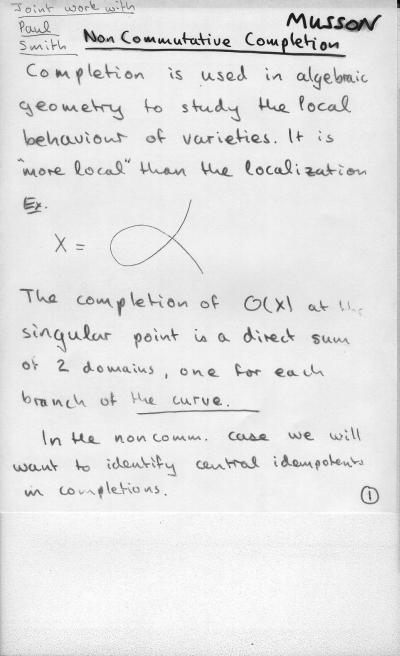 Joint work with
Paul
Smith
MUSSON
Non Commutative Completion
Completion is used in algebraic
geometry to study the local
behaviour of varieties. It is
"more local" than the localization
Ex.
X =
The completion of O(X) at the
singular point is a direct sum
of 2 domains, one for each
branch of the curve.
In the noncomm. case we will
want to identify central idempotents
in completions.
1